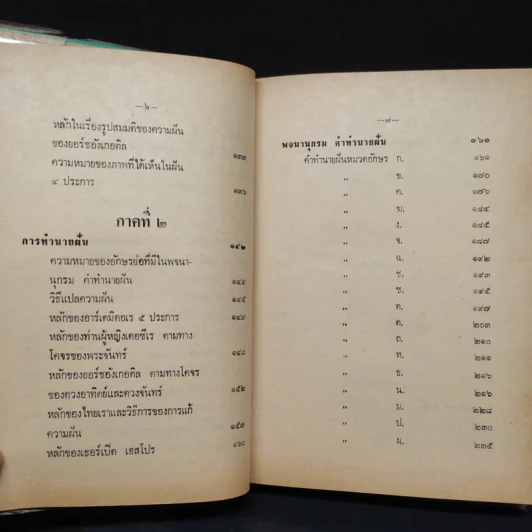 —๖—
หลักในเรื่องรูปสมมติของความฝัน
ของยอร์ชอังเกอคิล ๑๓๓
ความหมายของภาพที่ได้เห็นในฝัน
๔ ประการ ๑๓๖
ภาคที่ ๒
การทำนายฝัน ๑๔๒
ความหมายของอักษรย่อที่มีในพจนา-
นุกรม คำทำนายฝัน ๑๔๔
วิธีแปลความฝัน ๑๔๕
หลักของอาร์เคมิคอเร ๕ ประการ ๑๔๗
หลักของท่านผู้หญิงเคอซีเร ตามทาง
โคจรของพระจันทร์ ๑๔๘
หลักของยอร์ชอังเกอคิล ตามทางโคจร
ของดวงอาทิตย์และดวงจันทร์ ๑๕๒
หลักของไทยเราและวิธีการของการแก้
ความฝัน ๑๕๗
หลักของเธอร์เบิด เฮสโปร ๑๖๐
—๗—
พจนานุกรม คำทำนายฝัน ๑๖๑
คำทำนายฝันหมวดอักษร ก. ๑๖๑
" ข. ๑๗๐
" ค. ๑๗๖
" ฆ. ๑๘๔
" ง. ๑๘๕
" จ. ๑๘๗
" ฉ. ๑๙๒
" ช. ๑๙๓
" ซ. ๑๙๕
" ด. ๑๙๗
" ต. ๒๐๓
" ถ. ๒๑๐
" ท. ๒๑๑
" ธ. ๒๑๖
" น. ๒๑๖
" บ. ๒๒๘
" ป. ๒๓๐
" ผ. ๒๓๕